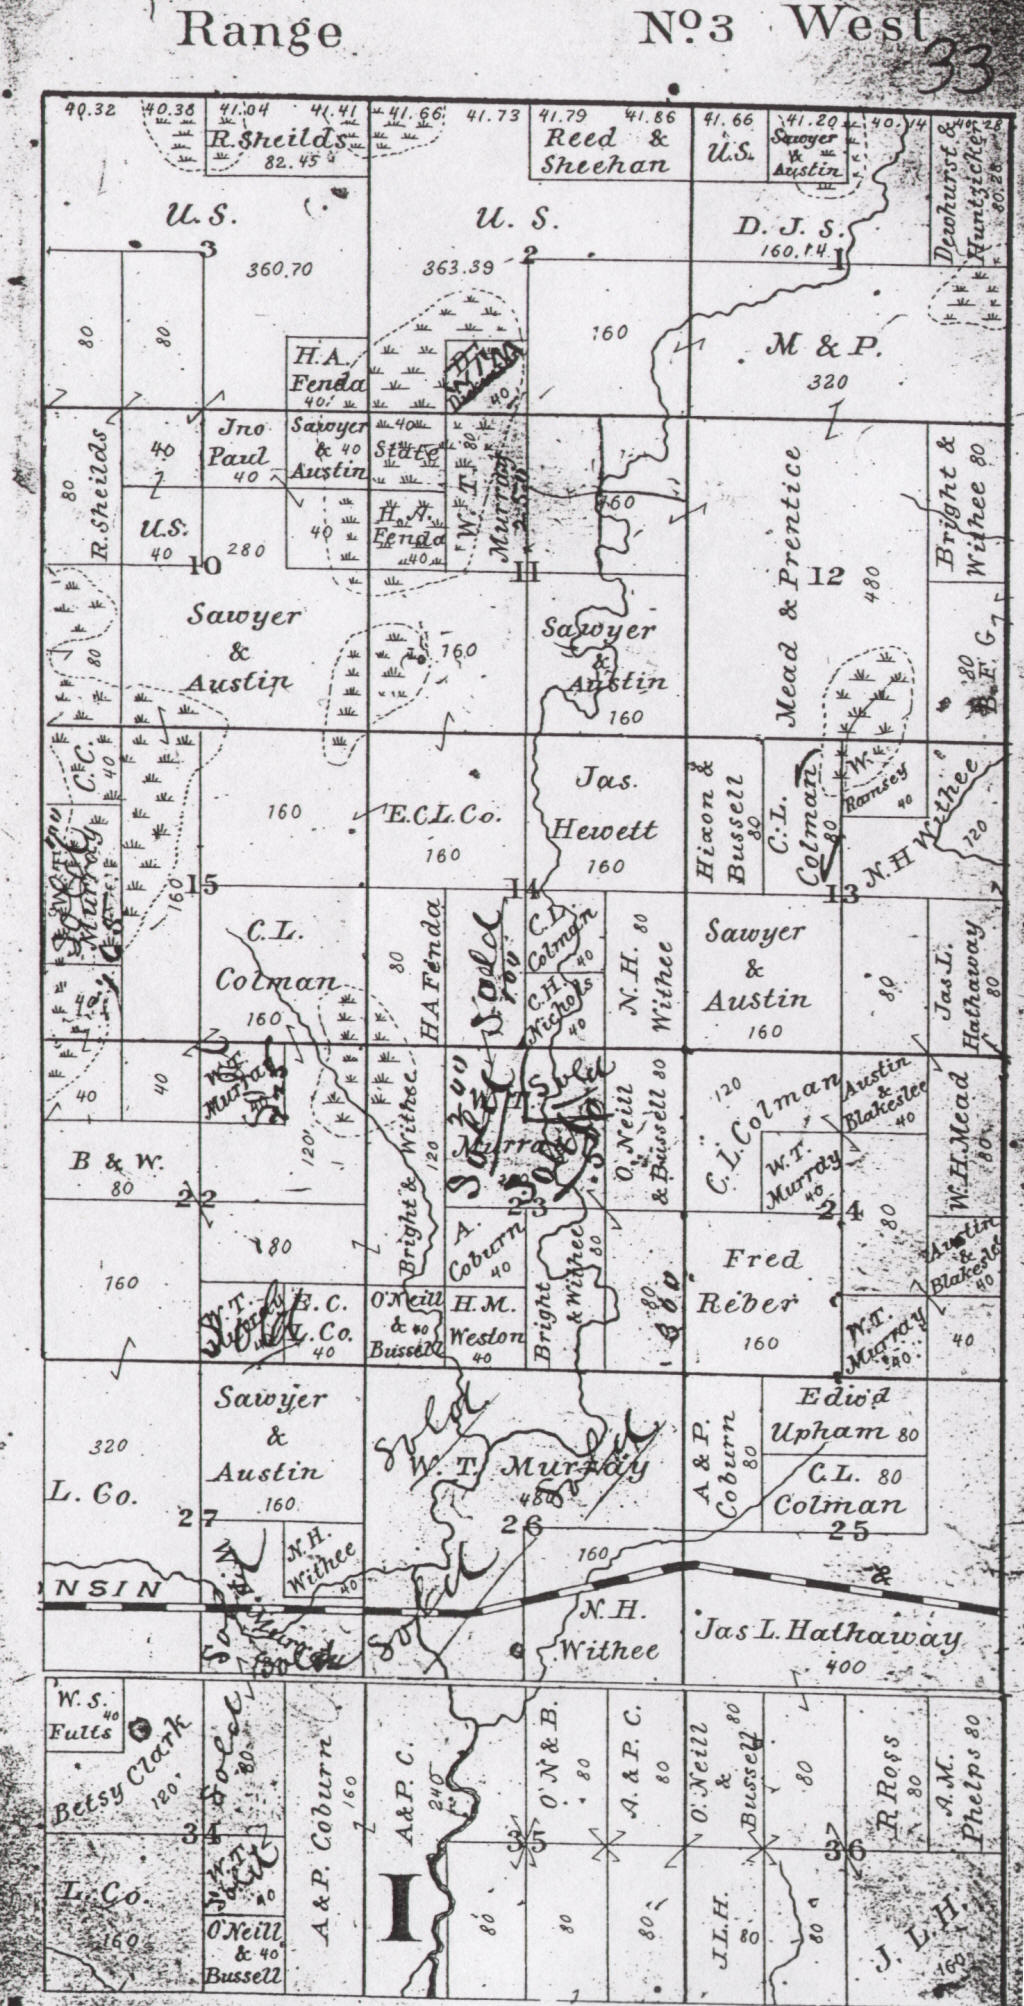 Range Nº3 West
33
40.32 40.38 41.04 41.41 41.66 41.73 41.79 41.86 41.66 41.20 40.14 40.28
R. Sheilds
82.45
Reed &
Sheehan
U.S.
Sawyer
&
Austin
Dewhurst &
Huntzicker
80.28
U.S.
U.S.
D. J. S.
160.14
3
2
1
360.70
363.39
80
80
H.A.
Fenda
40
40
160
M & P.
320
R. Sheilds
80
40
Jno
Paul
40
Sawyer
& 40
Austin
40
State
W. T.
Murray
80
160
Mead & Prentice
480
Bright &
Withee 80
U.S.
40
280
40
H. A.
Fenda
40
10
11
12
80
Sawyer
&
Austin
160
Sawyer
&
Austin
160
80
B. F. G.
C.C.
40
160
E.C.L.Co.
160
Jas.
Hewett
160
Hixon &
Bussell
80
C. L.
Colman
80
W.
Ramsey
40
N. H Withee
120
Murray
160
15
14
13
C.L.
Colman
160
80
H A Fenda
Sold
C. L.
Colman
40
C.H.
Nichols
40
N. H. 80
Withee
Sawyer
&
Austin
160
80
Jas. L.
Hathaway
80
40
40
40
W.T.
Murray
40
120
Bright & Withee
120
W. T.
Murray
Sold
O'Neill
& Bussell 80
120
C. L. Colman
Austin
&
Blakeslee
40
W. H. Mead
80
B & W.
80
W. T.
Murray
40
22
23
24
80
80
A.
Coburn
40
Bright
& Withee
80
Fred
Reber
160
Austin
&
Blakeslee
40
160
W. T.
Murray
40
E. C.
L. Co.
40
O'Neill
& 40
Bussell
H. M.
Weston
40
80
W. T.
Murray
40
40
320
L. Co.
Sawyer
&
Austin
160
Sold
W. T. Murray
480
Sold
A & P.
Coburn
80
Edwd
Upham 80
C.L. 80
Colman
27
26
25
N. H.
Withee
40
160
NSIN
&
Sold
Murray
Sold
N. H.
Withee
Jas L. Hathaway
400
W. S.
40
Fults
Betsy Clark
120
Sold
80
A & P. Coburn
160
A & P. C.
240
O'N & B.
80
A. & P. C.
80
O'Neill
&
Bussell
80
80
R Ross
80
A. M.
Phelps 80
34
35
36
L. Co.
160
W. T.
40
O'Neill
& 40
Bussell
I
80
80
80
J. L. H.
80
80
J. L. H.
160